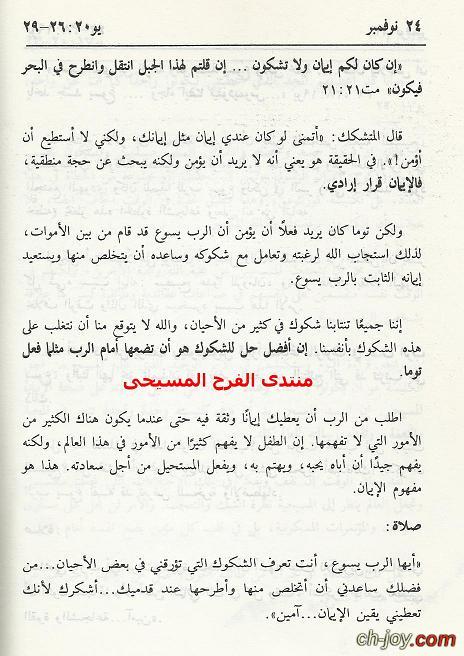 ٢٤ نوفمبر
يو٢٠:٢٦-٢٩
«إن كان لكم إيمان ولا تشكون ... إن قلتم لهذا الجبل انتقل وانطرح في البحر
فيكون» مت٢١:٢١
قال المتشكك: «أتمنى لو كان عندي إيمان مثل إيمانك، ولكني لا أستطيع أن
أؤمن!». في الحقيقة هو يعني أنه لا يريد أن يؤمن ولكنه يبحث عن حجة منطقية،
فالإيمان قرار إرادي.
ولكن توما كان يريد فعلاً أن يؤمن أن الرب يسوع قد قام من بين الأموات،
لذلك استجاب الله لرغبته وتعامل مع شكوكه وساعده أن يتخلص منها ويستعيد
إيمانه الثابت بالرب يسوع.
إننا جميعًا تنتابنا شكوك في كثير من الأحيان، والله لا يتوقع منا أن نتغلب على
هذه الشكوك بأنفسنا. إن أفضل حل للشكوك هو أن تضعها أمام الرب مثلما فعل
توما.
منتدى الفرح المسيحى
اطلب من الرب أن يعطيك إيمانًا وثقة فيه حتى عندما يكون هناك الكثير من
الأمور التي لا تفهمها. إن الطفل لا يفهم كثيرًا من الأمور في هذا العالم، ولكنه
يفهم جيدًا أن أباه يحبه، ويهتم به، ويفعل المستحيل من أجل سعادته. هذا هو
مفهوم الإيمان.
صلاة:
«أيها الرب يسوع، أنت تعرف الشكوك التي تؤرقني في بعض الأحيان...من
فضلك ساعدني أن أتخلص منها وأطرحها عند قدميك...أشكرك لأنك
تعطيني يقين الإيمان...آمين».
ch-joy.com